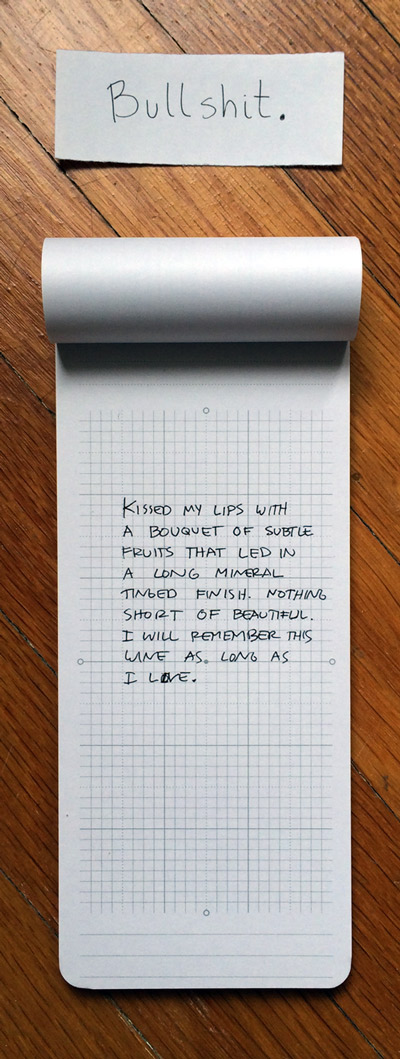 Bullshit.
KISSED MY LIPS WITH
A BOUQUET OF SUBTLE
FRUITS THAT LED IN
A LONG MINERAL
TINGED FINISH. NOTHING
SHORT OF BEAUTIFUL.
I WILL REMEMBER THIS
WINE AS LONG AS
I